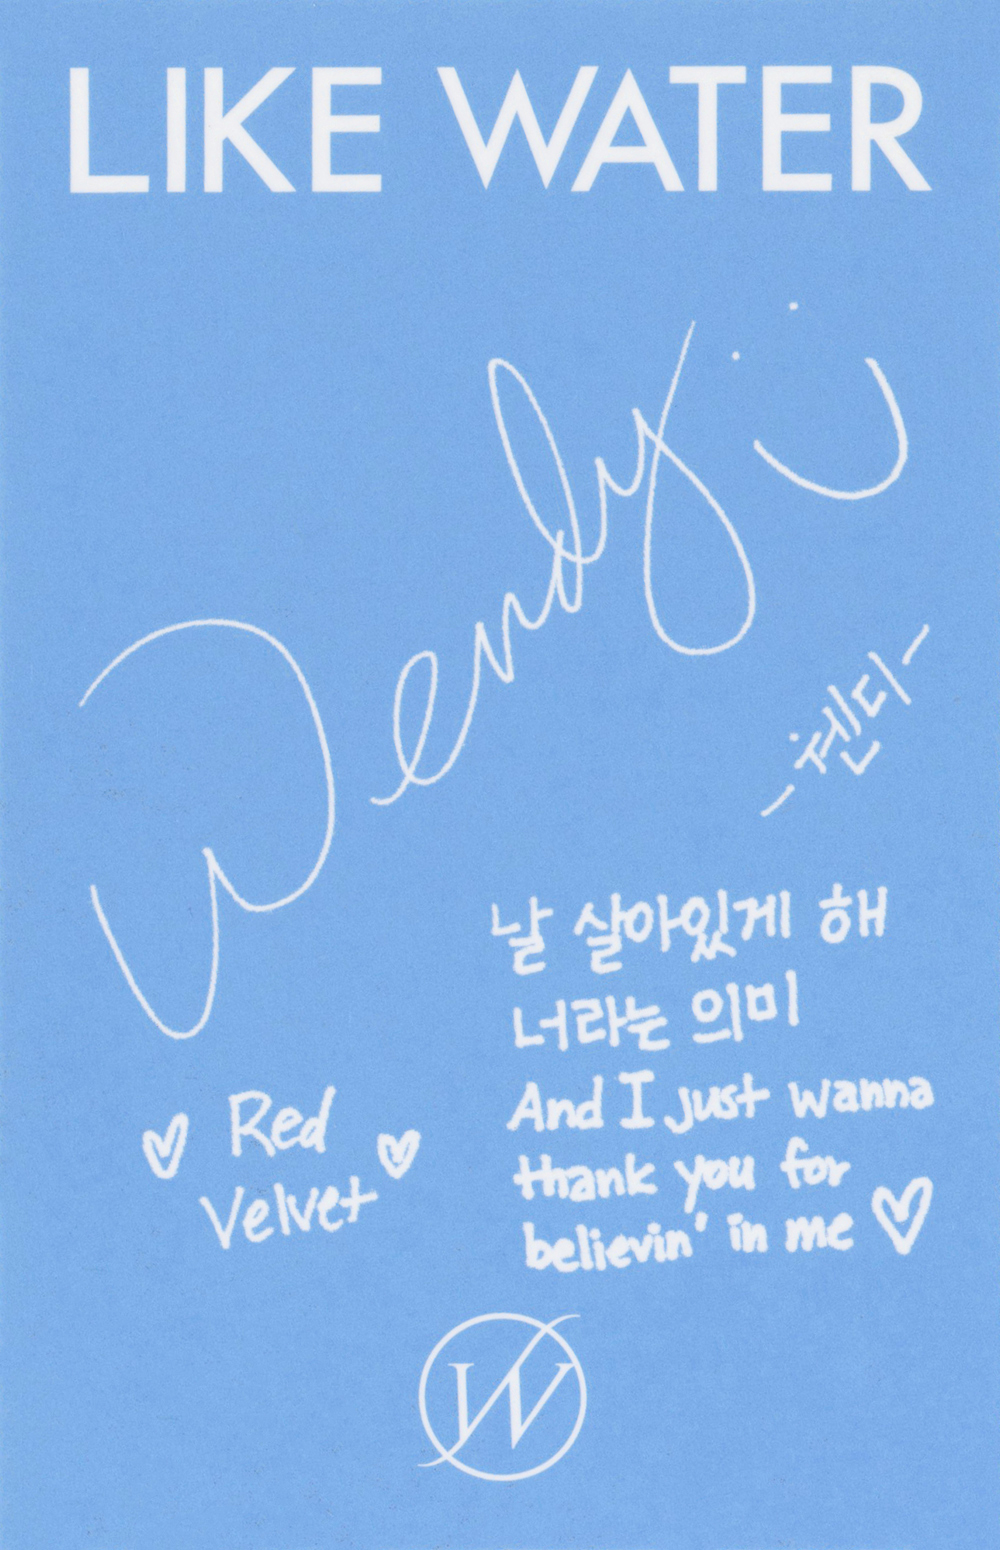 LIKE WATER
Wendy
-웬디-
날 살아있게 해
너라는 의미
And I just wanna
thank you for
believin' in me
Red
Velvet
W